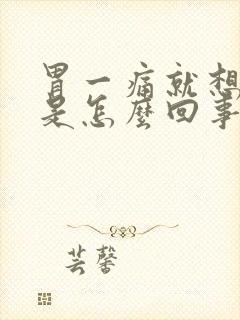 胃一痛就想
是怎麼回事
芸馨